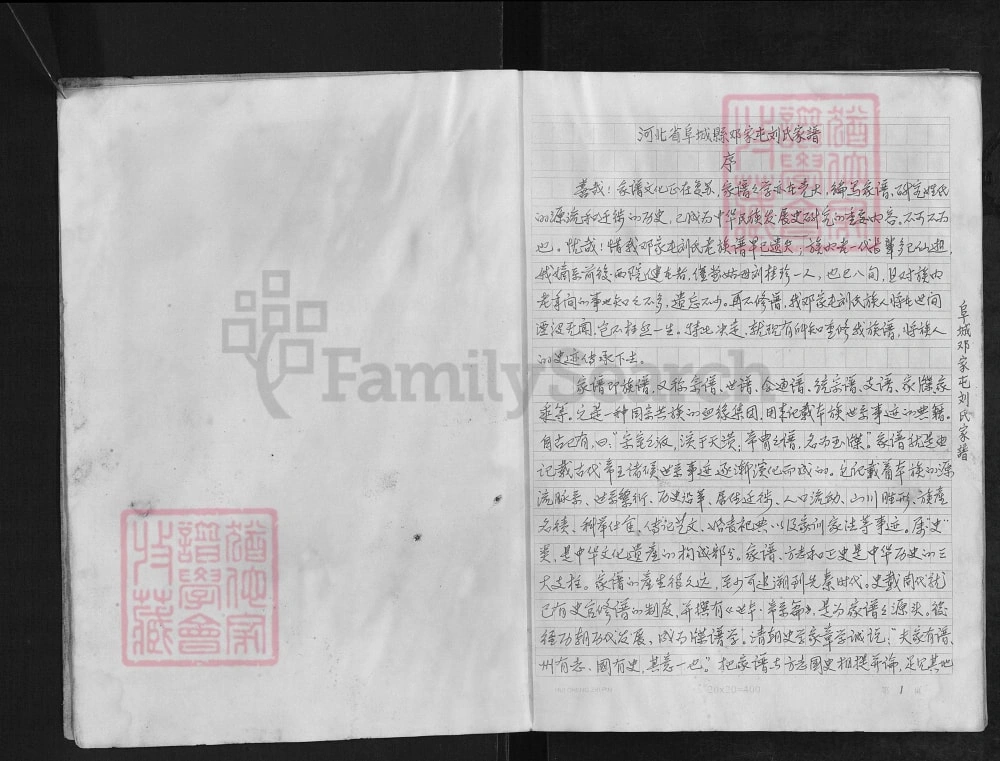 河北省阜城縣邓家屯刘氏家譜
序
善哉！家谱文化正在复苏，家谱之学亦在光大，编写家谱、研究姓氏
的源流和迁徙的历史，已成为中华民族发展史研究的重要内容。不可不为
也。忧哉！惜我邓家屯刘氏老族谱早已遗失；族内老一代长辈多已仙逝，
我嫡亲前後两院健在者，僅堂姑母刘桂珍一人，也已八旬，且对族内
老辈间的事也知之不多，遗忘不少。再不修谱，我邓家屯刘氏族人将在世间
湮没无闻，岂不枉然一生。特此决定，就现有所知查修我族谱，将族人
的史迹传承下去。
家谱即族谱，又称宗谱、世谱、会通谱、统宗谱、支谱、家牒、家
乘等。它是一种同宗共族的血缘集团，用来记载本族世系事迹的典籍。
自古已有，曰："宗室之派，演于天潢；帝胄之谱，名为玉牒。"家谱就是由
记载古代帝王诸侯世系事迹逐渐演化而成的。它记载着本族的源
流脉系、世系繁衍、历史沿革、居住迁徙、人口流动、山川胜形、族產
名绩、科举仕宦、传记艺文、婚丧祀典以及家训家法等事迹。属"史"
类，是中华文化遗產的构成部分。家谱、方志和正史是中华历史的三
大支柱。家谱的產生很久远，至少可追溯到先秦时代。史载周代就
已有史官修谱的制度，并撰有《世本·帝系篇》，是为家谱之源头。後
经历朝历代发展，成为牒谱学。清朝史学家章学诚说："夫家有谱、
州有志、國有史，其意一也。"把家谱与方志國史相提并论，足见其地
20x20=400
第 1 页
阜城邓家屯刘氏家譜
猶他家
譜學會
收藏
猶他家
譜學會
收藏
FamilySearch